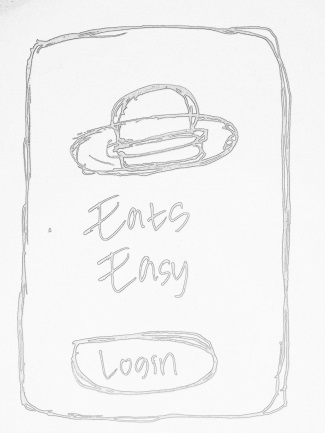 Eats
Easy
Login